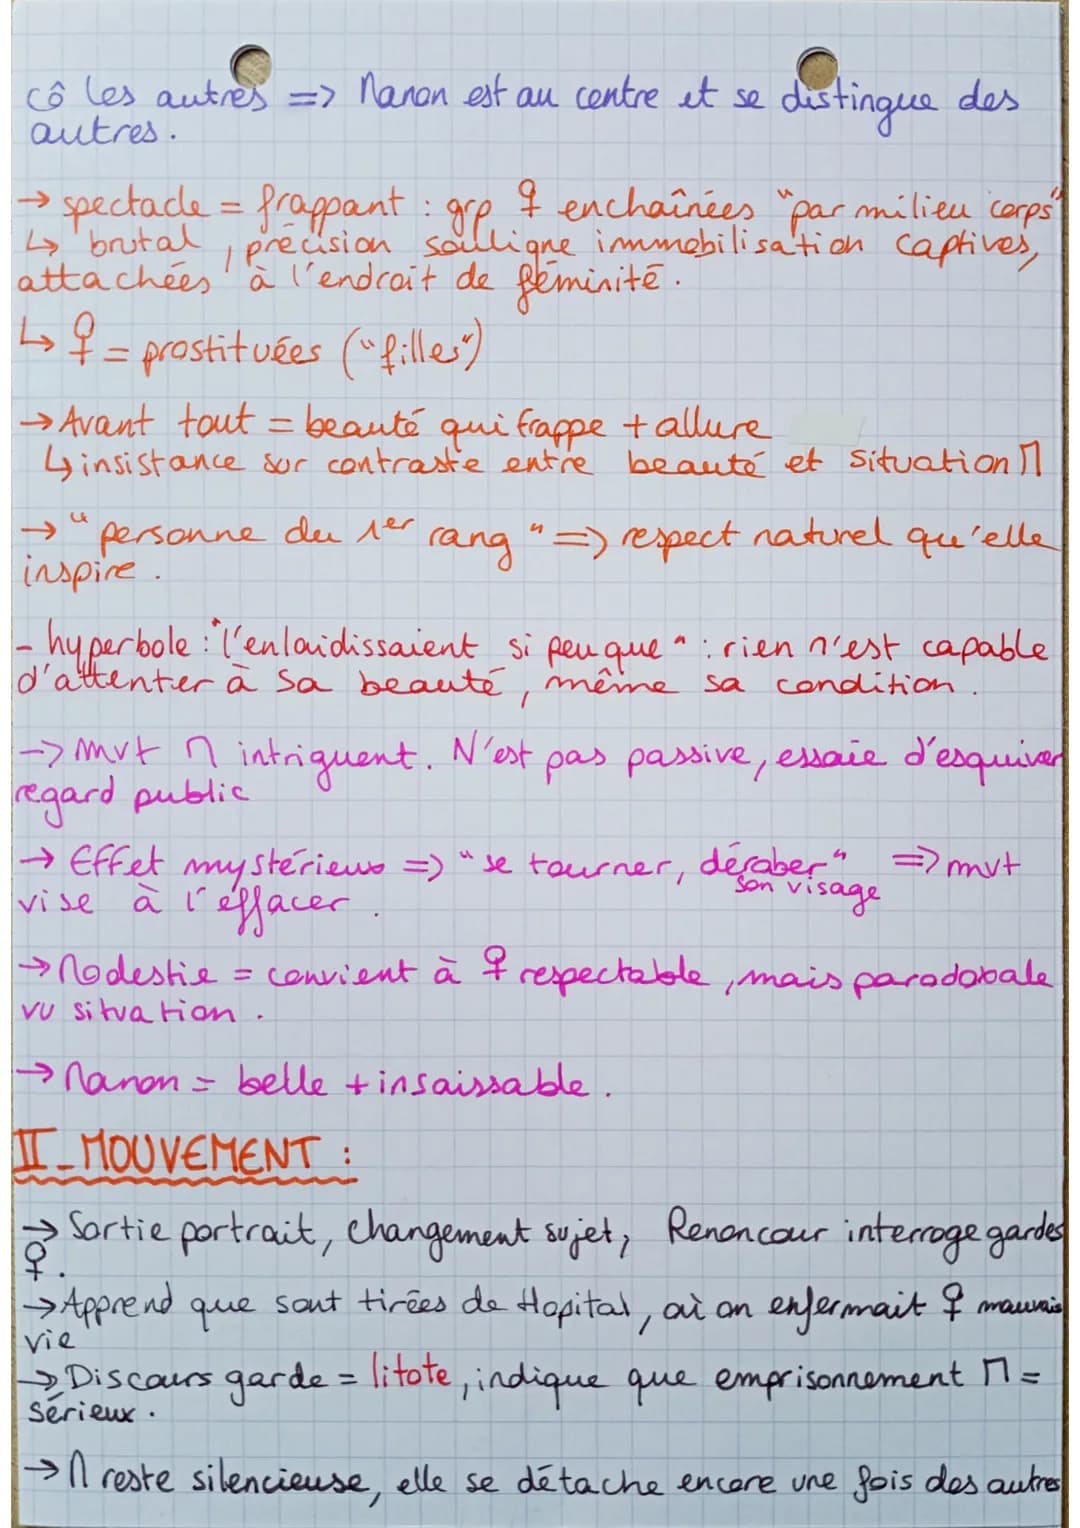 cô les autres => Manon est au centre et se distingue des
autres.
→ spectacle = frappant : grp ♀ enchaînées "par milieu corps"
↳ brutal, précision souligne immobilisation captives,
attachées à l'endroit de féminité.
↳ ♀ = prostituées ("filles")
→ Avant tout = beauté qui frappe + allure
↳ insistance sur contraste entre beauté et situation M
→ "personne du 1er rang" => respect naturel qu'elle
inspire.
- hyperbole : "l'enlaidissaient si peu que" : rien n'est capable
d'attenter à sa beauté, même sa condition.
-> mvt M intriguent. N'est pas passive, essaie d'esquiver
regard public
→ Effet mystérieux => "se tourner, dérober" => mvt
son visage
vise à l'effacer.
→ Modestie = convient à ♀ respectable, mais paradoxale
vu situation.
→ Manon = belle + insaissable.
II - MOUVEMENT :
→ Sortie portrait, changement sujet, Renoncour interroge gardes
♀.
→ Apprend que sont tirées de Hopital, où on enfermait ♀ mauvais
vie
→ Discours garde = litote, indique que emprisonnement M =
sérieux.
→ M reste silencieuse, elle se détache encore une fois des autres